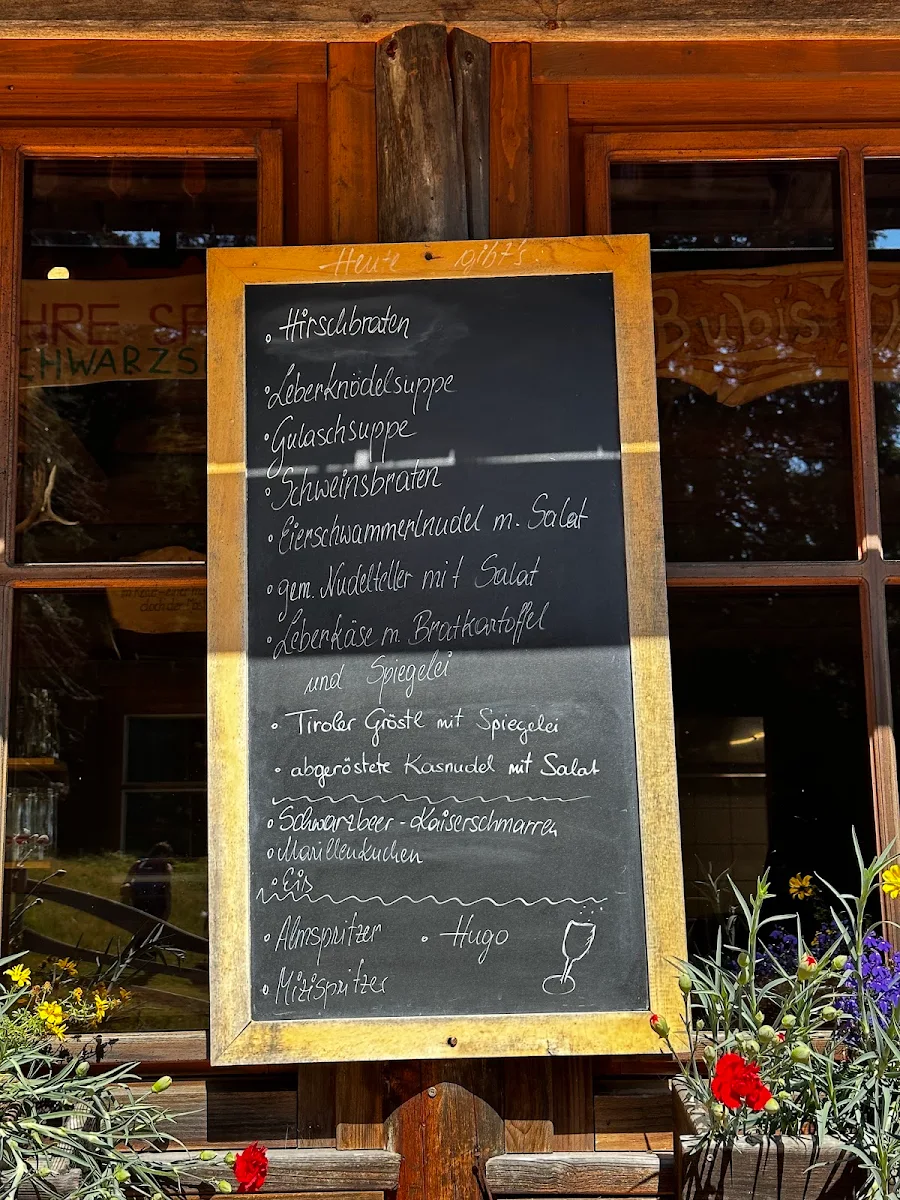 Heute gibt's:
• Hirschbraten
• Leberknödelsuppe
• Gulaschsuppe
• Schweinsbraten
• Eierschwammerlnudel m. Salat
• gem. Nudelteller mit Salat
• Leberkäse m. Bratkartoffel
und Spiegelei
• Tiroler Gröstl mit Spiegelei
• abgeröstete Kasnudel mit Salat
• Schwarzbeer-Kaiserschmarren
• Marillenkuchen
• Eis
• Almspritzer • Hugo
• Mizispritzer
HRE SP
CHWARZS
Bubis